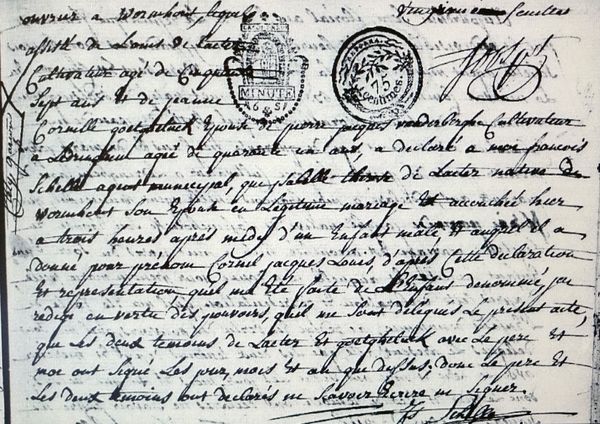 ouvrier a Wormhout
assisté de Louis de Laeter
Cultivateur agé de Cinquante
MINUTE
75
Centimes
Sept ans Et de jeanne
Cornille goetgheluck Epouse de pierre jacques vanderberghe Cultivateur
a Ledringhem agée de quarante un ans, a declaré a moi francois
Schelle agent municipal, que isabelle de Laeter native de
wormhout Son Epouse en Légitime mariage Est accouchée hier
a trois heures apres midy d'un Enfant male, Et auquel il a
donné pour prénom Cornil jacques Louis, d'apres Cette declaration
Et representation, quil ma Eté faite de L'Enfant denommé, jai
redigé en vertu des pouvoirs, quil me Sont delegués Le present acte,
que Les deux temoins de Laeter Et goetgheluck avec Le pere Et
moi ont Signé Les jour, mois Et an que dessus, donc Le pere Et
Les deux temoins ont declarés ne Savoir Ecrire ni Signer.